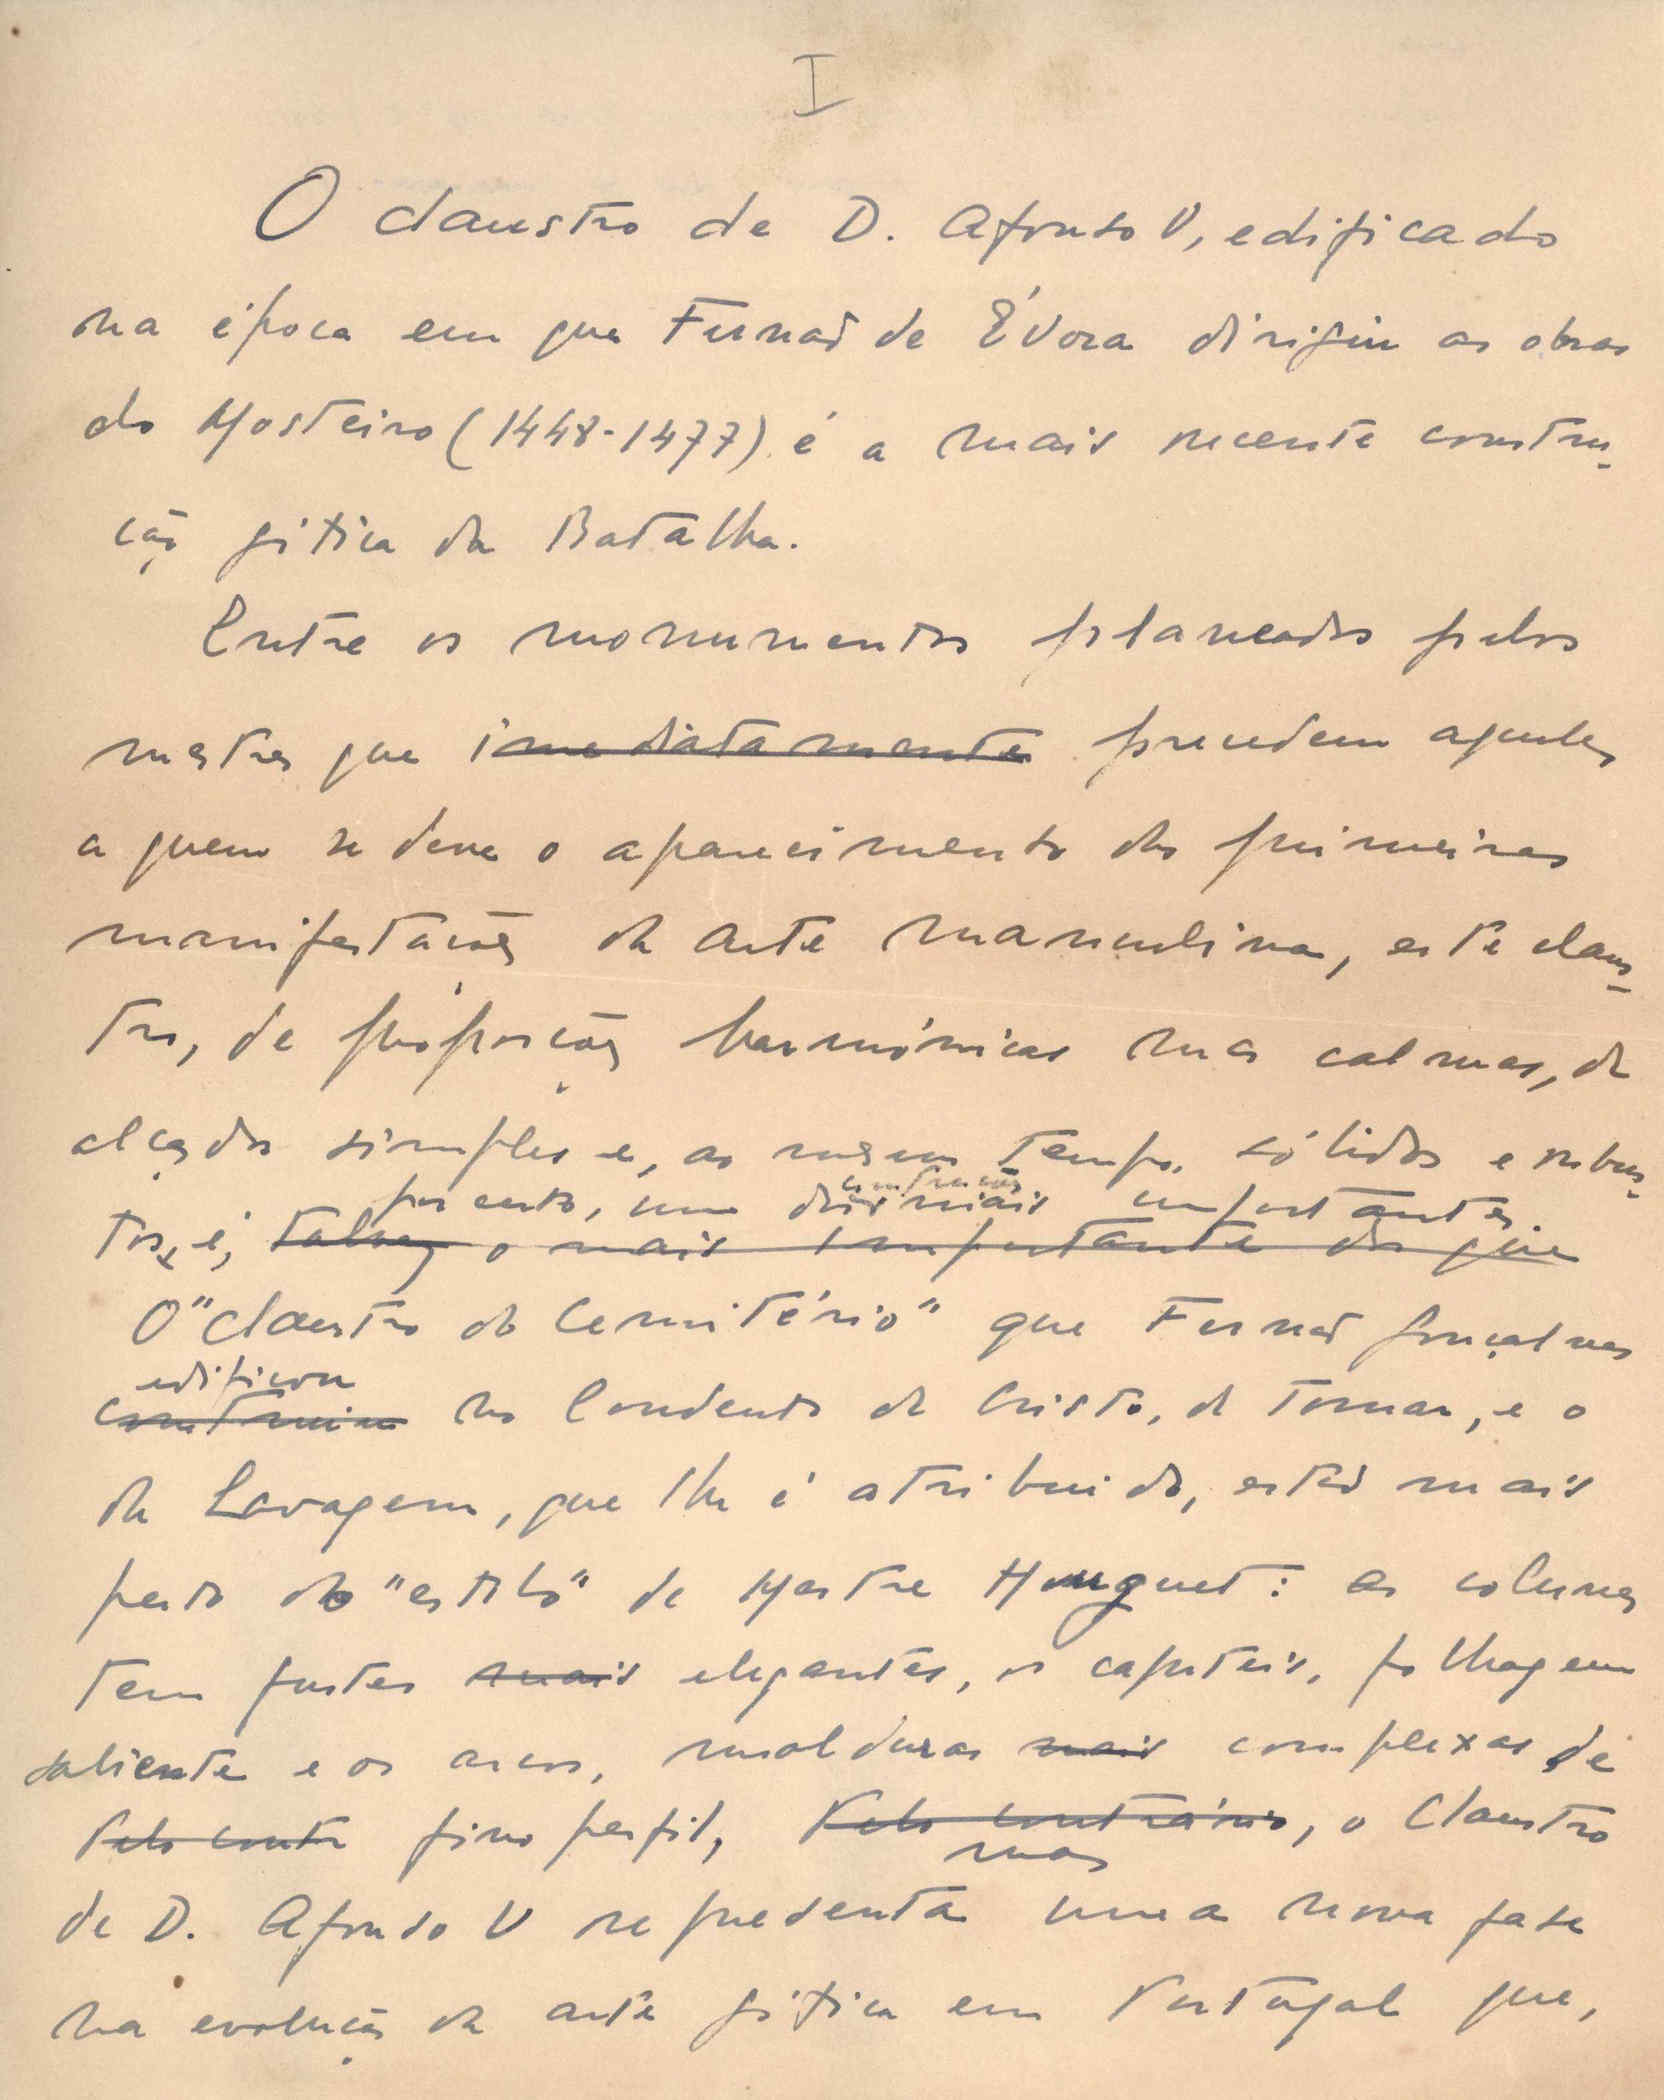 I
O claustro de D. Afonso V, edificado
na época em que Fernão de Évora dirigiu as obras
do Mosteiro (1448-1477) é a mais recente constru-
ção gótica da Batalha.
Entre os monumentos planeados pelos
mestres que imediatamente precedem aqueles
a quem se deve o aparecimento das primeiras
manifestações da arte manuelina, este claus-
tro, de proporções harmónicas mas calmas, de
alçados simples e, ao mesmo tempo, sólidos e robus-
por certo, uma das construções mais importantes.
tos, é, talvez o mais importante da que
O "Claustro do Cemitério" que Fernão Gonçalves
edificou
construiu no Convento de Cristo, de Tomar, e o
da Lavagem, que lhe é atribuido, estão mais
perto do "estilo" de Mestre Huguet: as colunas
tem fustes mais elegantes, os capiteis, folhagem
saliente e os arcos, molduras mais complexas de
Pelo contr fino perfil, Pelo contrário, o Claustro
mas
de D. Afonso V representa uma nova fase
na evolução da arte gótica em Portugal que,